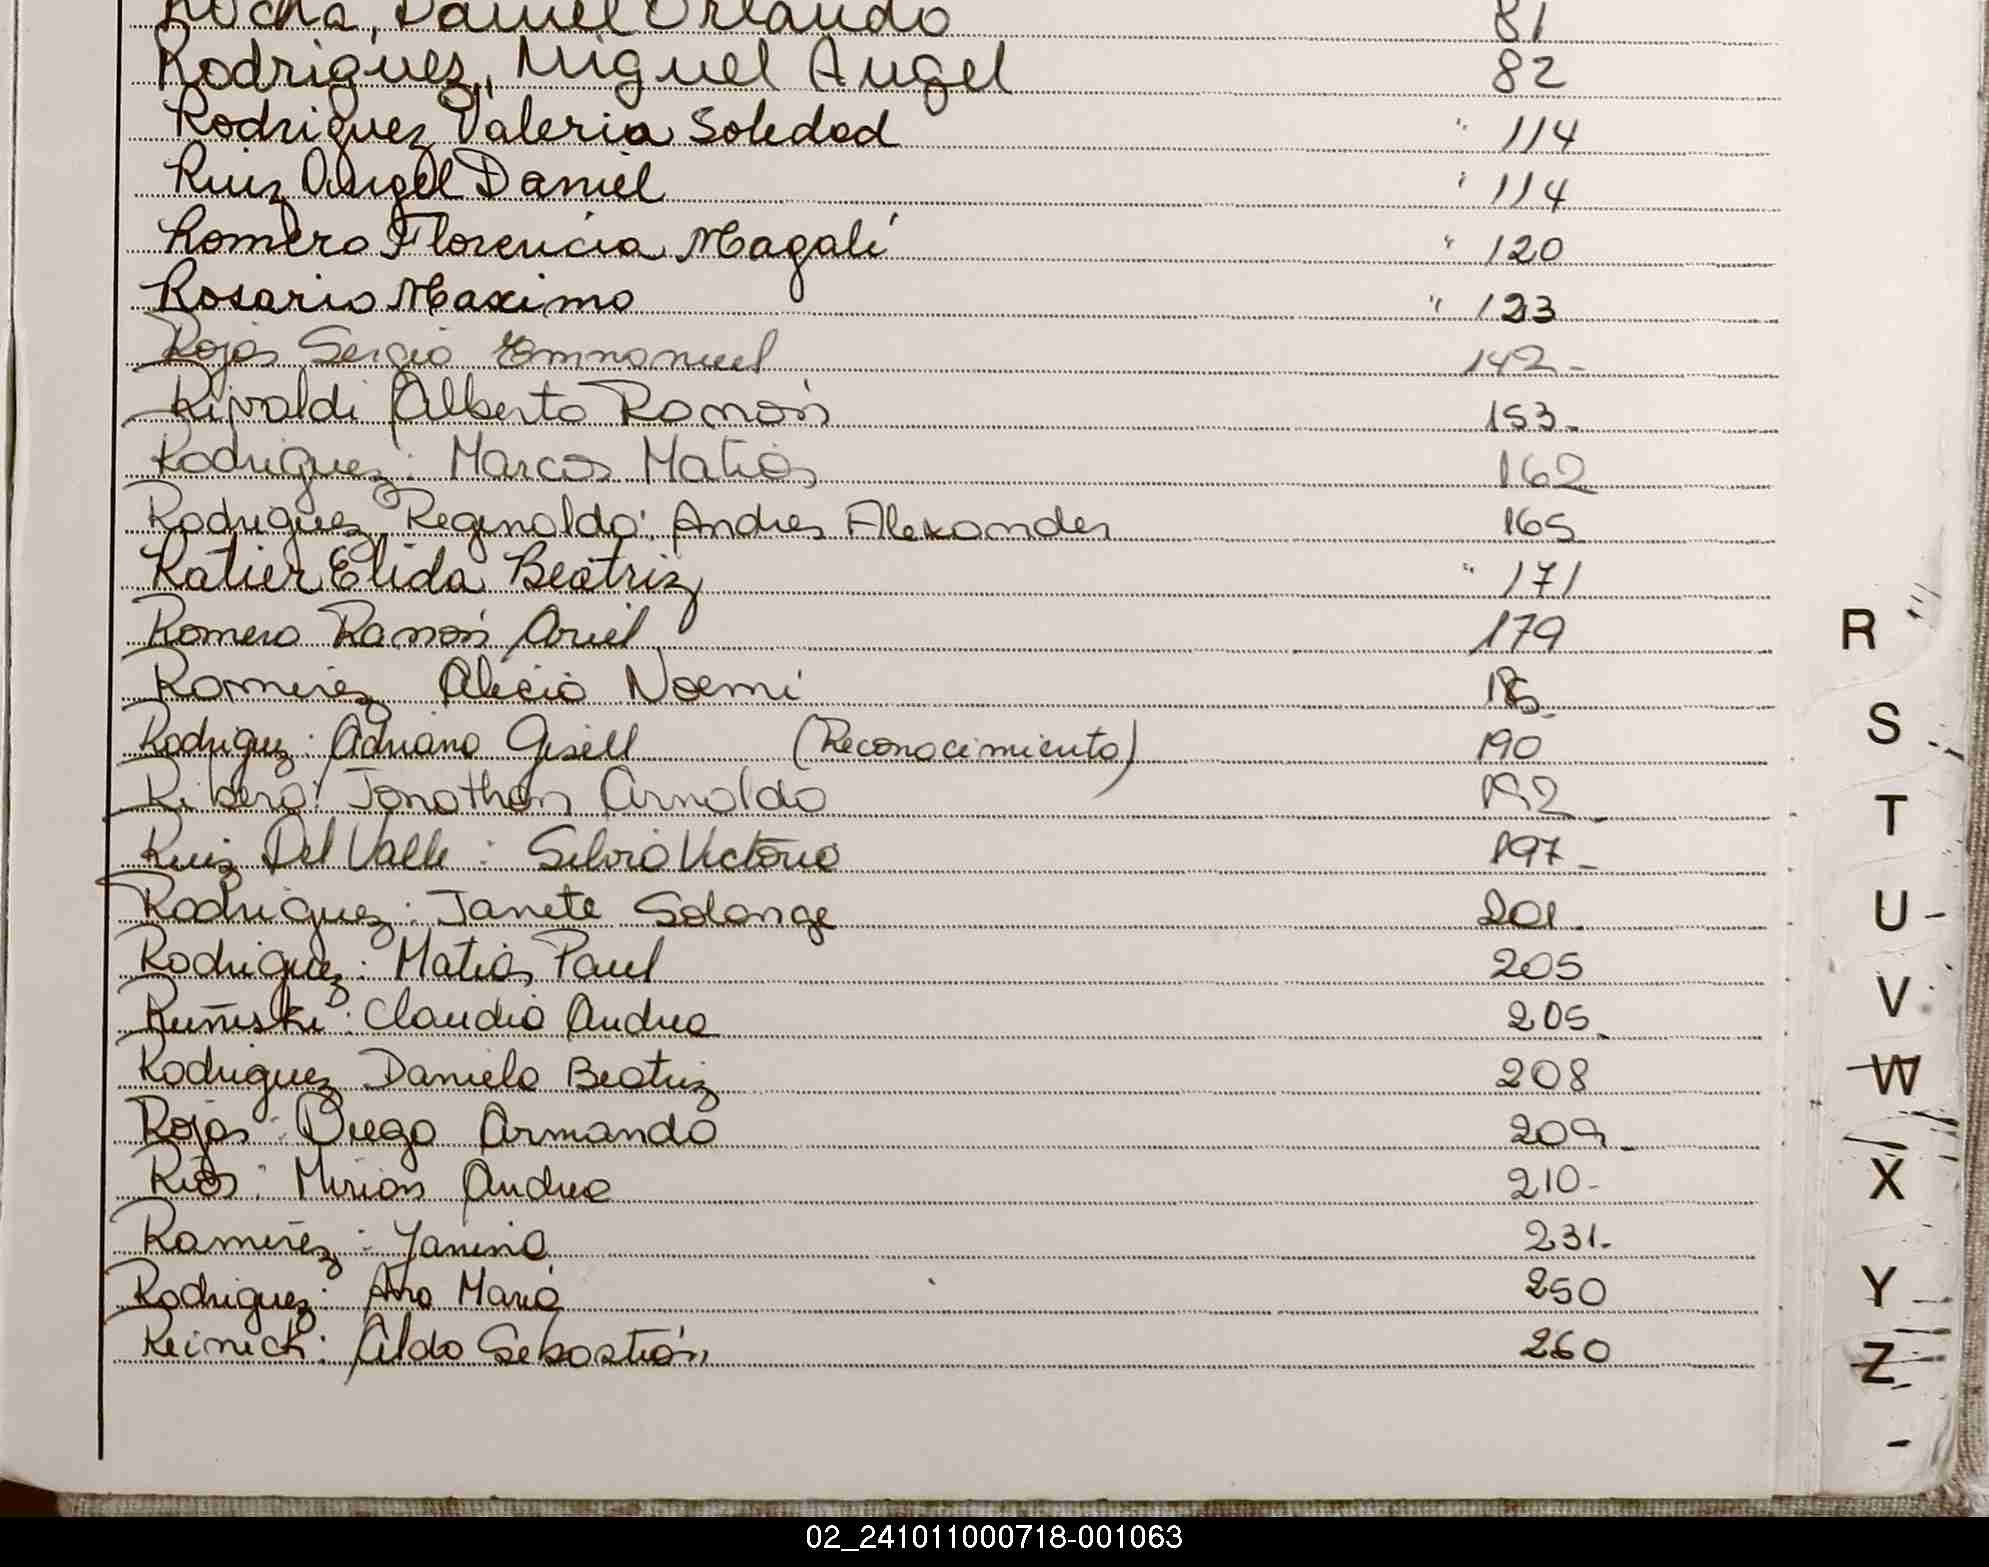 Rocha, Daniel Orlando 81
Rodriguez, Miguel Angel 82
Rodriguez Valeria Soledad " 114
Ruiz Angel Daniel " 114
Romero Florencia Magalí " 120
Rosario Maximo " 123
Rojas Sergio Emmanuel 142-
Rivaldi Alberto Ramón 153-
Rodriguez: Marcos Matias 162
Rodriguez Reginaldo: Andres Alexander 165
Ratier Elida Beatriz " 171
Romero Ramón Ariel 179
Ramirez Alicia Noemi
Rodriguez: Adriana Gisell (Reconocimiento) 190
Ribero: Jonathan Arnaldo 192
Ruiz Del Valle: Silvia Victoria 197-
Rodriguez: Janete Solange 201
Rodriguez: Matias Paul 205
Claudia Andrea 205
Rodriguez Daniela Beatriz 208
Rojas: Diego Armando 209-
Rios: Mirian Andrea 210-
Ramirez: Yanina 231-
Rodriguez: Ana Maria 250
Reinick: Aldo Sebastián 260
R
S
T
U
V
W
X
Y
Z
02_241011000718-001063